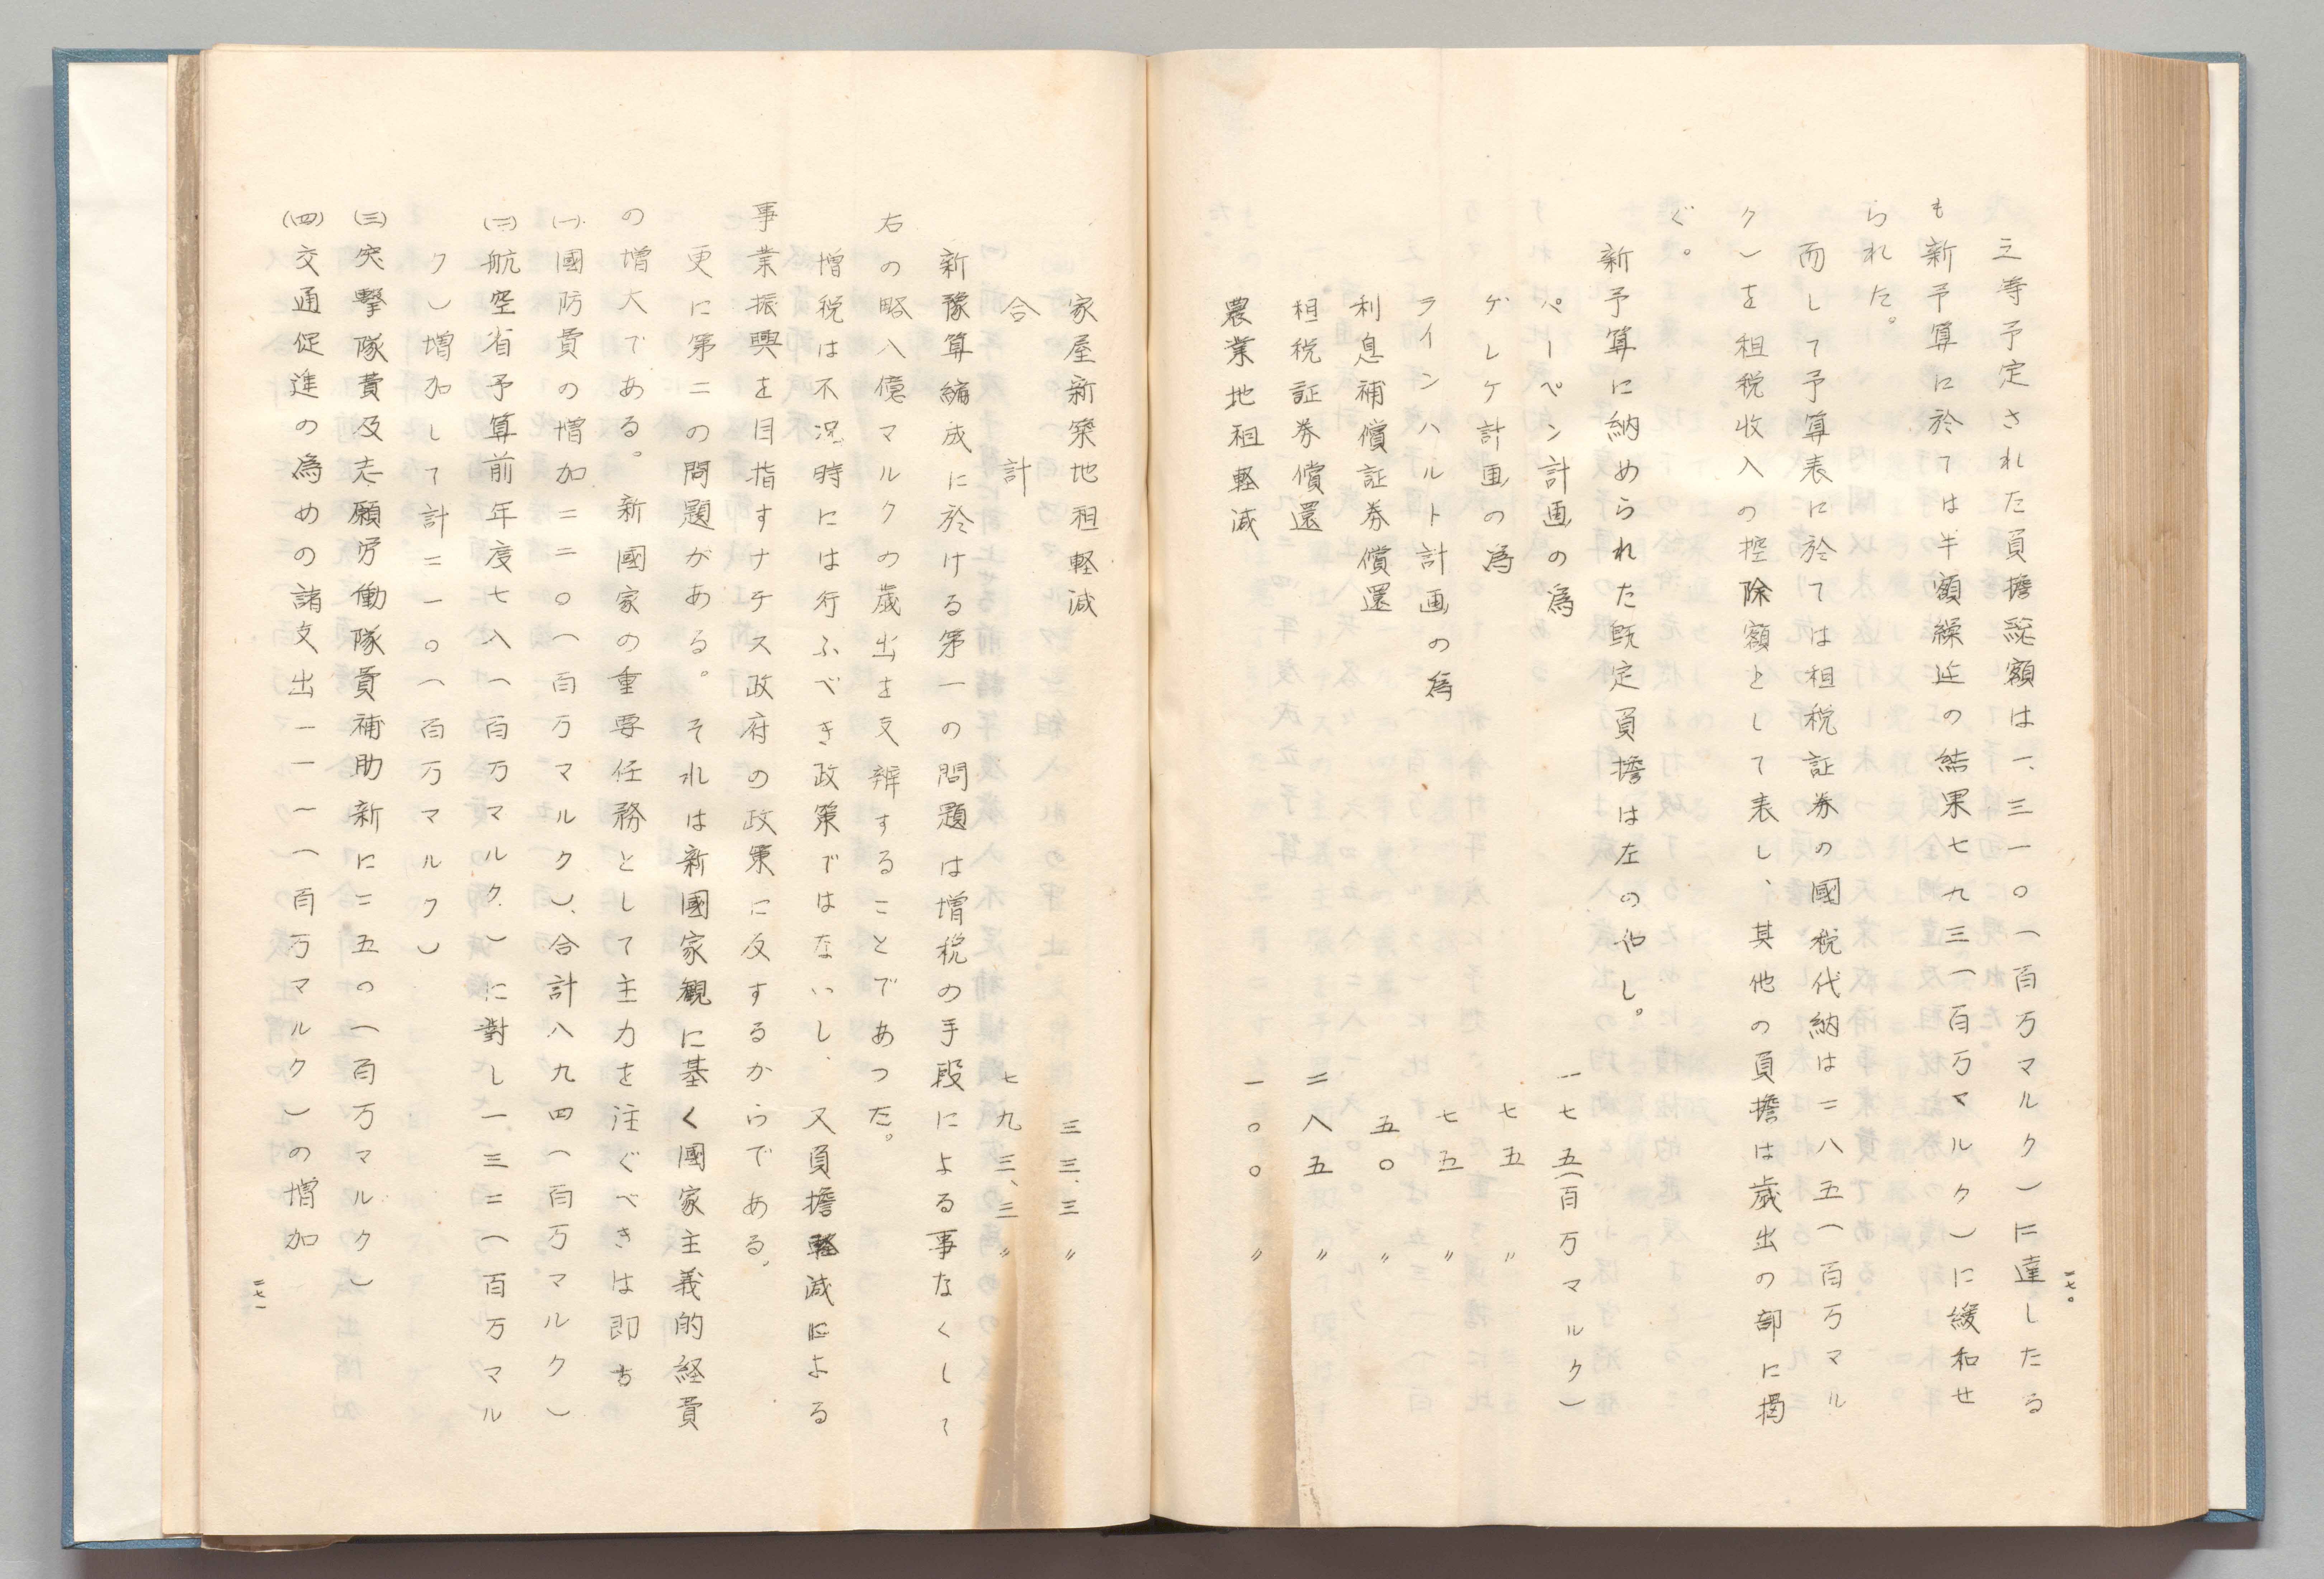 一七〇
之等予定された負擔総額は一、三一〇(百万マルク)に達したる
も新予算に於ては半額繰延の結果七九三(百万マルク)に緩和せ
られた。
而して予算表に於ては租税証券の國税代納は二八五(百万マル
ク)を租税收入の控除額として表し、其他の負擔は歳出の部に掲
ぐ。
新予算に納められた既定負擔は左の如し。
ペーペン計画の為 一七五(百万マルク)
ゲレケ計画の為 七五 〃
ラインハルト計画の為 七五 〃
利息補償証券償還 五〇 〃
租税証券償還 二八五 〃
農業地租軽減 一〇〇 〃
家屋新築地租軽減 三三、三 〃
合計 七九三、三 〃
新豫算編成に於ける第一の問題は増税の手段による事なくして
右の略八億マルクの歳出を支辨することであつた。
増税は不況時には行ふべき政策ではないし、又負擔軽減による
事業振興を目指すナチス政府の政策に反するからである。
更に第二の問題がある。それは新國家観に基く國家主義的経費
の増大である。新國家の重要任務として主力を注ぐべきは即ち
(一)國防費の増加二二〇(百万マルク)、合計八九四(百万マルク)
(二)航空省予算前年度七八(百万マルク)に對し一三二(百万マル
ク)増加して計二一〇(百万マルク)
(三)突擊隊費及志願労働隊員補助新に二五〇(百万マルク)
(四)交通促進の為めの諸支出一一一(百万マルク)の増加
一七一